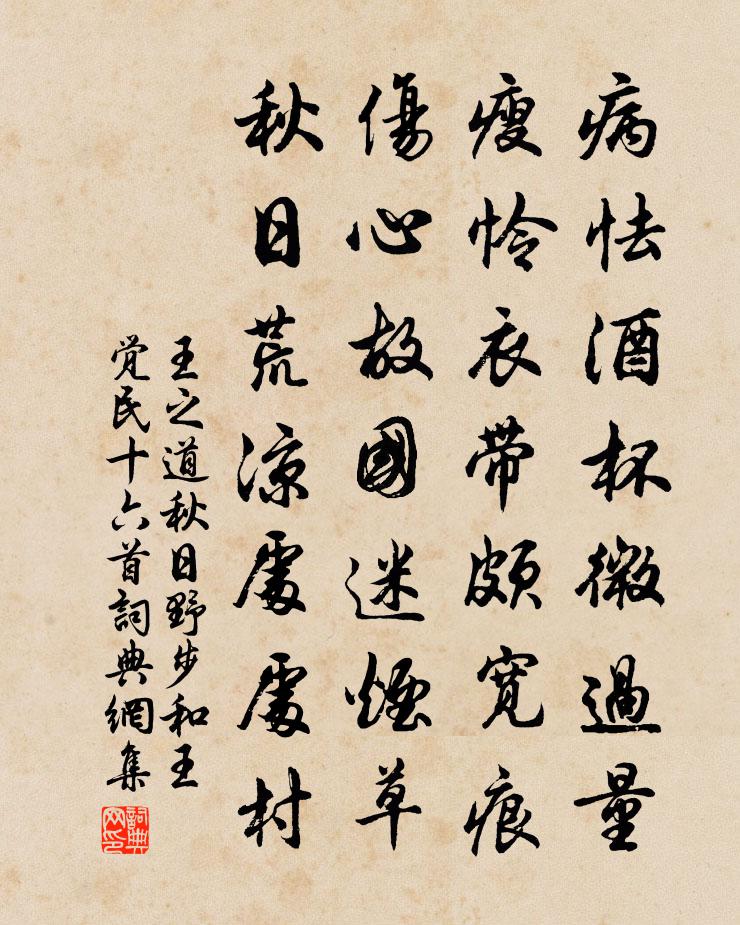 病怯酒杯微過量
瘦怜衣帶頗寬痕
傷心故國迷煙草
秋日荒涼處處村
王之道秋日野步和王
觉民十六首詞典網集
詞典網印